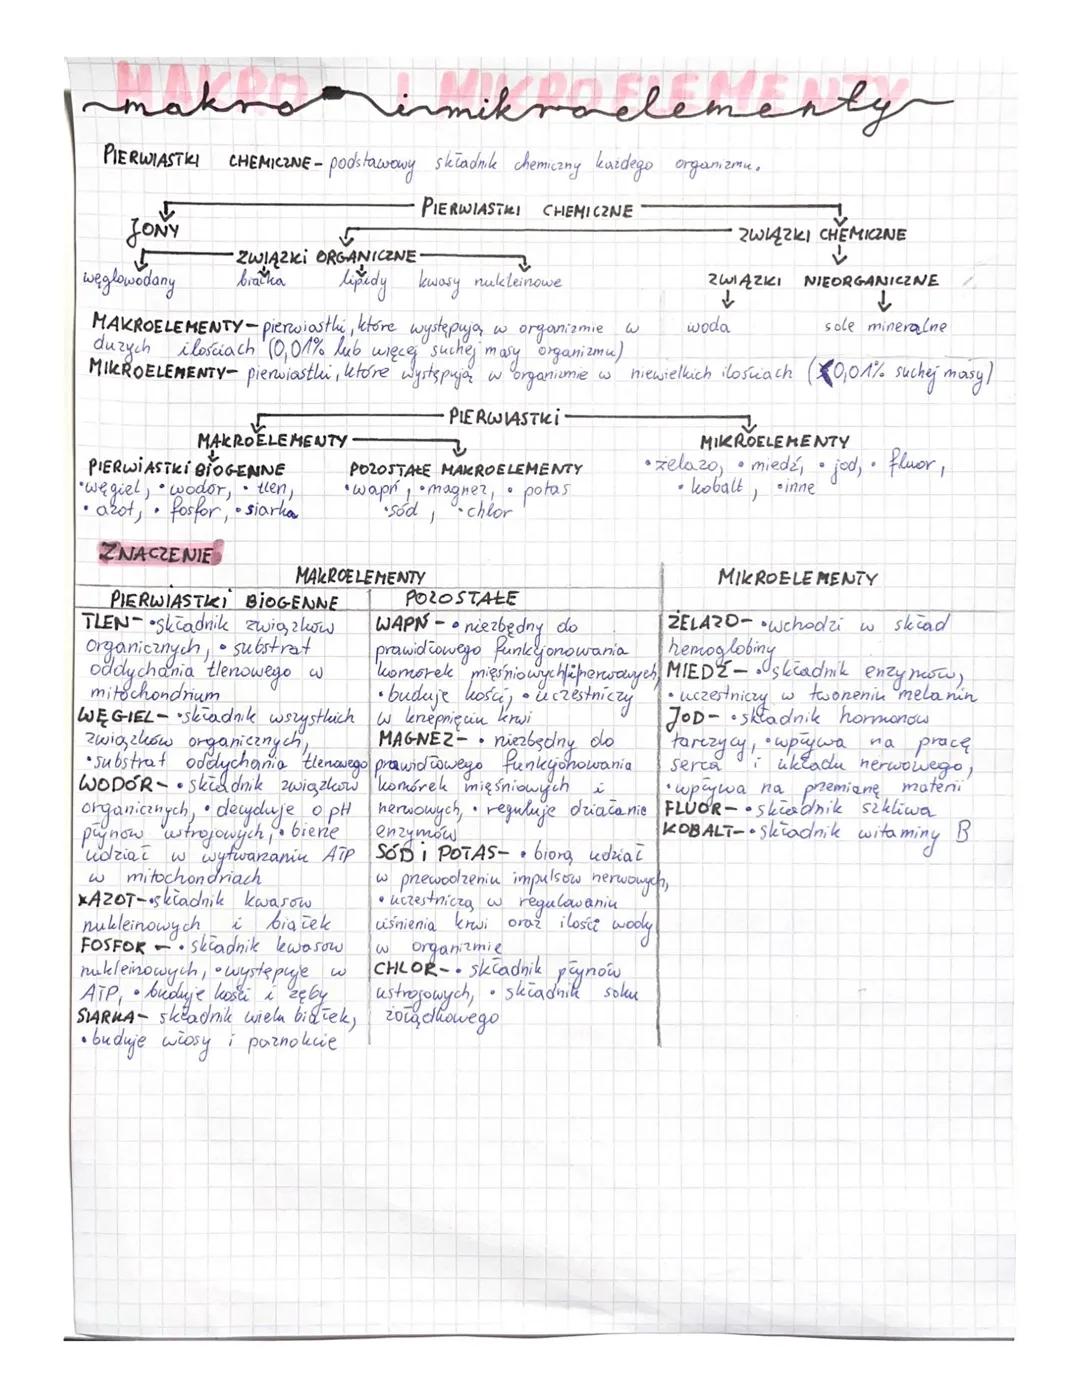 MAKRO I MIKROELEMENTY
makro i mikroelementy
PIERWIASTKI CHEMICZNE - podstawowy składnik chemiczny każdego organizmu.
PIERWIASTKI CHEMICZNE
JONY
ZWIĄZKI CHEMICZNE
ZWIĄZKI ORGANICZNE
węglowodany białka lipidy kwasy nukleinowe
ZWIĄZKI NIEORGANICZNE
woda sole mineralne
MAKROELEMENTY - pierwiastki, które występują w organizmie w
dużych ilościach (0,01% lub więcej suchej masy organizmu)
MIKROELEMENTY - pierwiastki, które występują w organizmie w niewielkich ilościach (0,01% suchej masy)
PIERWIASTKI
MAKROELEMENTY
MIKROELEMENTY
PIERWIASTKI BIOGENNE
• węgiel, • wodór, • tlen,
• azot, • fosfor, • siarka
POZOSTAŁE MAKROELEMENTY
• wapń, • magnez, • potas
• sód, • chlor
• żelazo, • miedź, • jod, • fluor,
• kobalt, • inne
ZNACZENIE
MAKROELEMENTY
MIKROELEMENTY
PIERWIASTKI BIOGENNE
TLEN - • składnik związków
organicznych, • substrat
oddychania tlenowego w
mitochondrium
WĘGIEL - • składnik wszystkich
związków organicznych,
• substrat oddychania tlenowego
WODÓR - • składnik związków
organicznych, • decyduje o pH
płynów ustrojowych, • bierze
udział w wytwarzaniu ATP
w mitochondriach
AZOT - • składnik kwasów
nukleinowych i białek
FOSFOR - • składnik kwasów
nukleinowych, • występuje w
ATP, • buduje kości i zęby
SIARKA - składnik wielu białek,
• buduje włosy i paznokcie
POZOSTAŁE
WAPŃ - • niezbędny do
prawidłowego funkcjonowania
komórek mięśniowych i nerwowych,
• buduje kości, • uczestniczy
w krzepnięciu krwi
MAGNEZ - • niezbędny do
prawidłowego funkcjonowania
komórek mięśniowych i
nerwowych, • reguluje działanie
enzymów
SÓD i POTAS - • biorą udział
w przewodzeniu impulsów nerwowych,
• uczestniczą w regulowaniu
ciśnienia krwi oraz ilości wody
w organizmie
CHLOR - • składnik płynów
ustrojowych, • składnik soku
żołądkowego
ŻELAZO - • wchodzi w skład
hemoglobiny
MIEDŹ - • składnik enzymów,
• uczestniczy w tworzeniu melanin
JOD - • składnik hormonów
tarczycy, • wpływa na pracę
serca i układu nerwowego,
• wpływa na przemianę materii
FLUOR - • składnik szkliwa
KOBALT - • składnik witaminy B